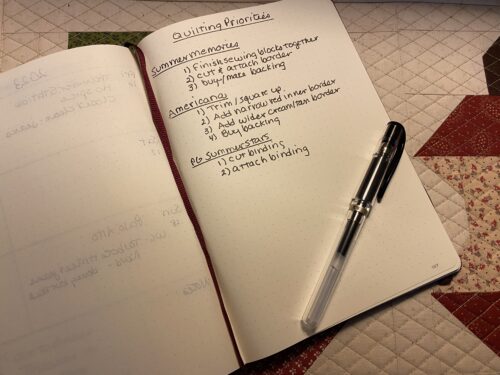 Quilting Priorities
Summer memories
1) Finish sewing blocks together
2) cut & attach border
3) buy/make backing
Americana
1) Trim/square up
2) Add narrow red inner border
3) Add wider cream/tan border
4) Buy backing
PG Summer Stars
1) cut binding
2) attach binding